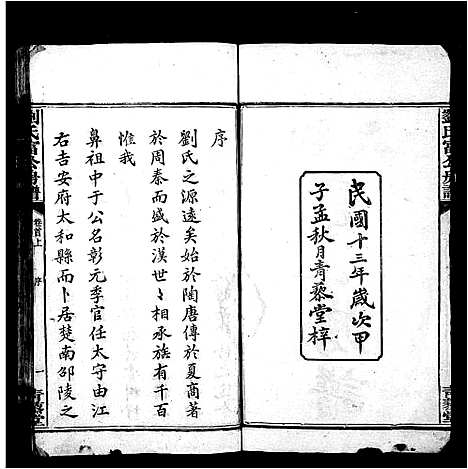 劉氏富公房譜
民國十三年歲次甲
子孟秋月青藜堂梓
青藜堂
序
劉氏之源遠矣始於陶唐傳於夏商著
於周秦而盛於漢世々相承族有千百
惟我
鼻祖中于公名彰元季官任太守由江
右吉安府太和縣而卜居楚南邵陵之
劉氏富公房譜
卷首上
序
一
青藜堂